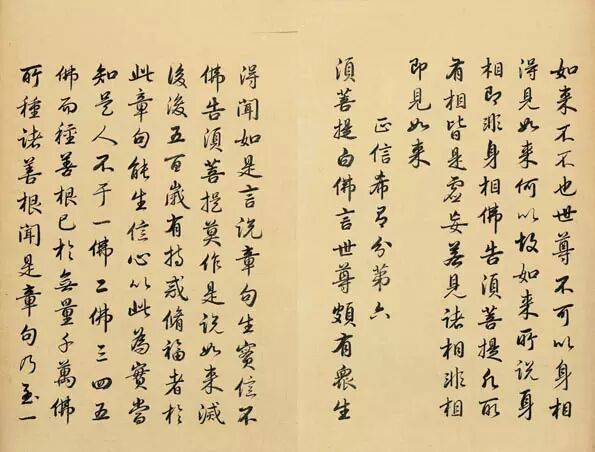 如来不不也世尊不可以身相
得見如来何以故如来所說身
相即非身相佛告須菩提凡所
有相皆是虛妄若見諸相非相
即見如来
正信希有分第六
須菩提白佛言世尊頗有眾生
得聞如是言說章句生實信不
佛告須菩提莫作是說如来滅
後後五百歲有持戒脩福者於
此章句能生信心以此為實當
知是人不于一佛二佛三四五
佛而種善根已於無量千萬佛
所種諸善根聞是章句乃至一